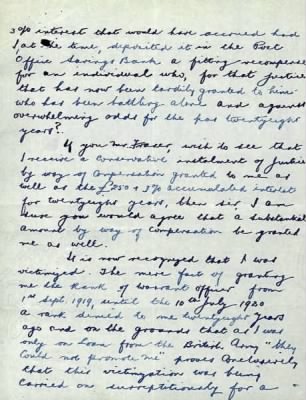 3% interest that would have accrued had
I, at the time, deposited it in the Post
Office Savings Bank a fitting recompense
for an individual who, for that Justice
that has now been tardily granted to him
who has been battling alone and against
overwhelming odds for the pas twentyeight
years?
If you Mr Fraser, wish to see that
I receive a Conservative instalment of Justice
by way of Compensation granted to me as
well as the £250 + 3% accumulated interest
for twentyeight years, then sir, I am
sure you would agree that a substantial
amount by way of Compensation be granted
me as well.
It is now recognized that I was
victimized. The mere fact of granting
me the Rank of Warrant Officer from
1st Sept. 1919, until the 10th July 1920
A rank denied to me twentyeight years
ago and on the grounds that as I was
only on Loan from the British Army "they
Could not promote me" proves Conclusively
that this victimization was being
Carried on surreptitiously for a